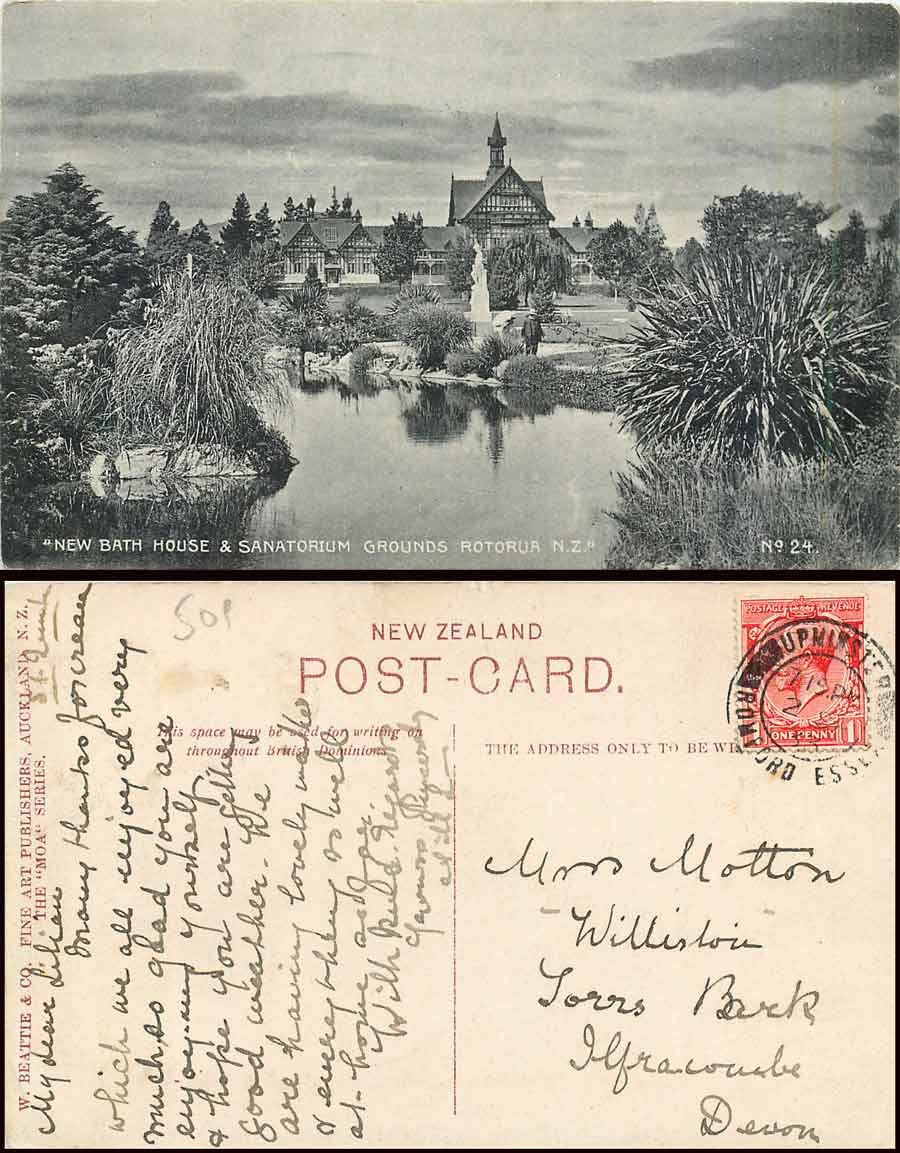 "NEW BATH HOUSE & SANATORIUM GROUNDS ROTORUA N.Z."
No 24.
W. BEATTIE & CO. FINE ART PUBLISHERS, AUCKLAND, N. Z.
THE "MOA" SERIES.
NEW ZEALAND
POST-CARD.
This space may be used for writing on
throughout British Dominions
THE ADDRESS ONLY TO BE WR
POSTAGE REVENUE
ONE PENNY
1
UPMINSTER
7.15 PM
ROMFORD ESSEX
June
My dear Lilian
Many thanks for cream
which we all enjoyed very
much, so glad you are
enjoying yourself
& hope you are getting
good weather. We
are having lovely weather
& everything so well
at home
With kind regards
Yours sincerely
Mrs Motton
Williston
Torrs Park
Ilfracombe
Devon